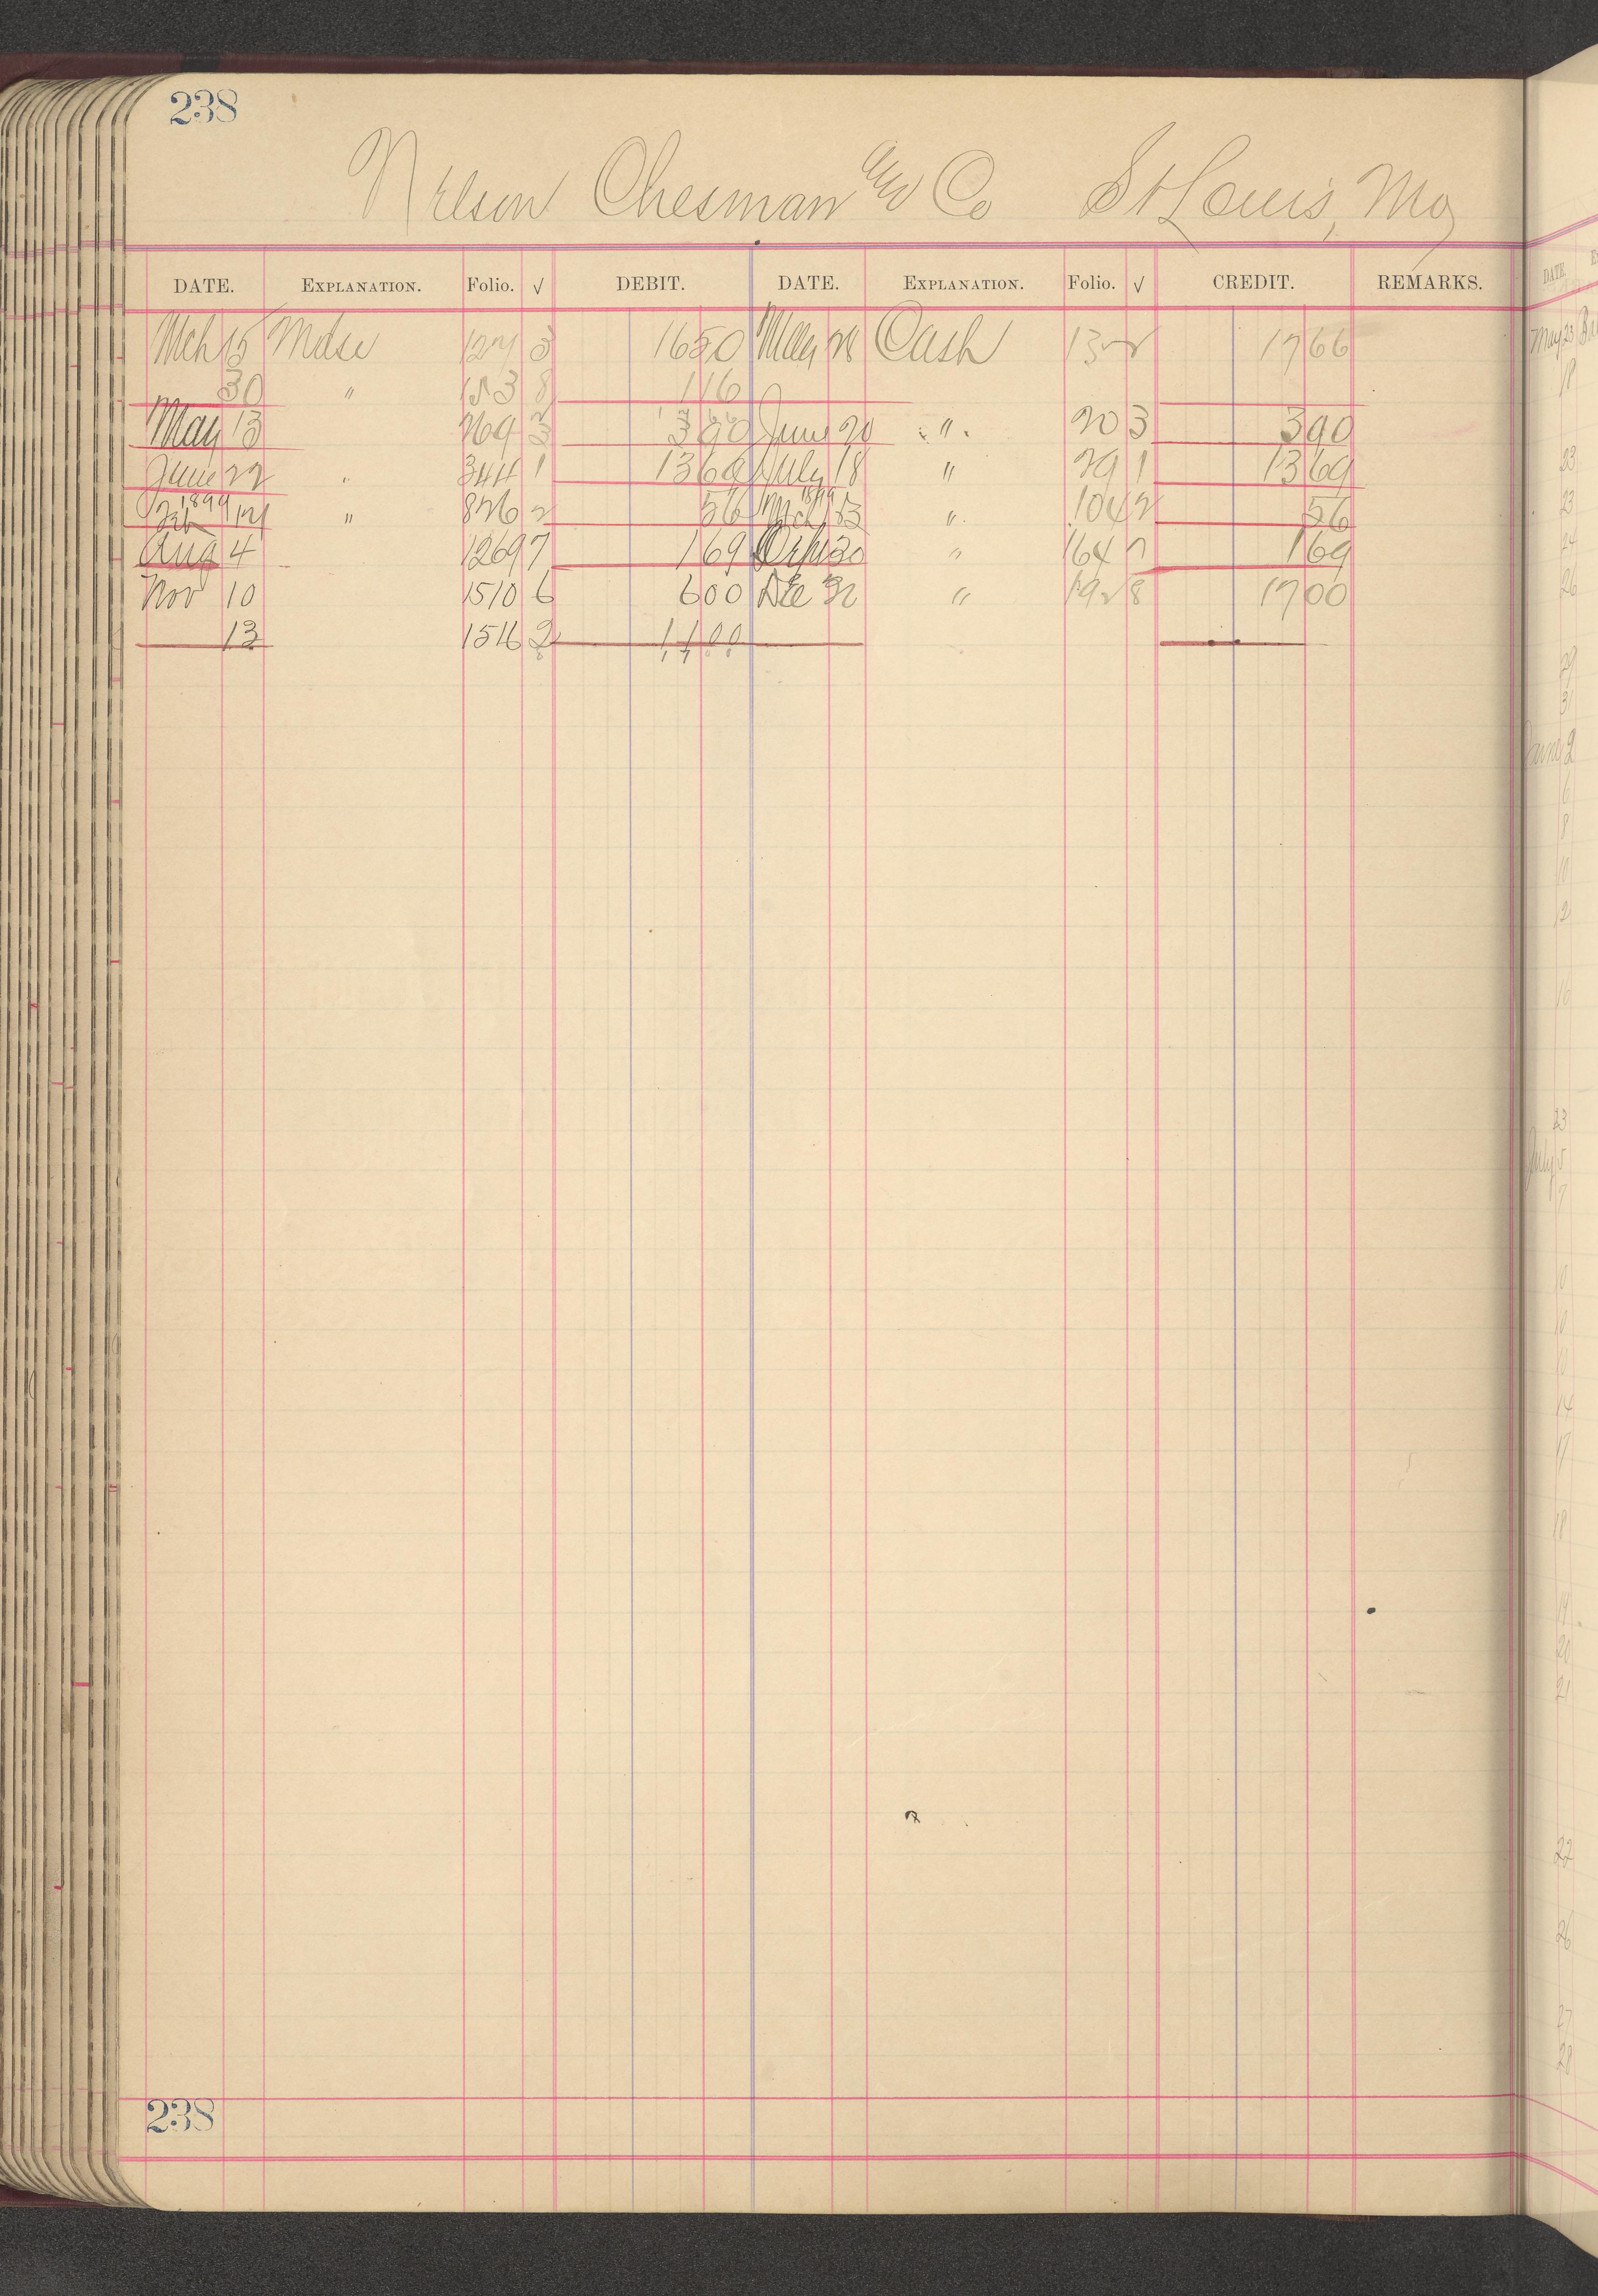 238
Nelson Chesman and Co St Louis, Mo
DATE. EXPLANATION. Folio. √ DEBIT. DATE. EXPLANATION. Folio. √ CREDIT. REMARKS.
Mch 15 Mdse 127 3 1650 May 28 Cash 132 1766
30 " 153 8 116
May 13 269 3 390 June 20 " 203 390
June 22 " 344 1 1369 July 18 " 291 1369
1899 1899
Feb 14 " 826 2 56 Mch 13 " 1042 56
Aug 4 1269 7 169 30 " 164 7 169
Nov 10 1510 6 600 Dec " 192 8 1700
13 1516 2 1100
238
DATE
May 23
18
23
23
24
26
29
31
June 2
6
8
10
12
16
23
July 5
7
10
10
14
17
18
19
20
21
22
26
27
28